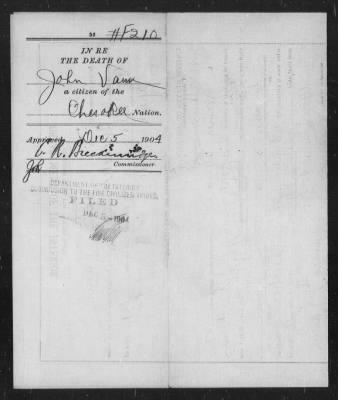 #F210
IN RE
THE DEATH OF
John Vann
a citizen of the
Cherokee Nation.
Approved Dec 5 1904
C. R. Breckinridge
Commissioner
DEPARTMENT OF THE INTERIOR,
COMMISSION TO THE FIVE CIVILIZED TRIBES.
FILED
DEC 5 1904